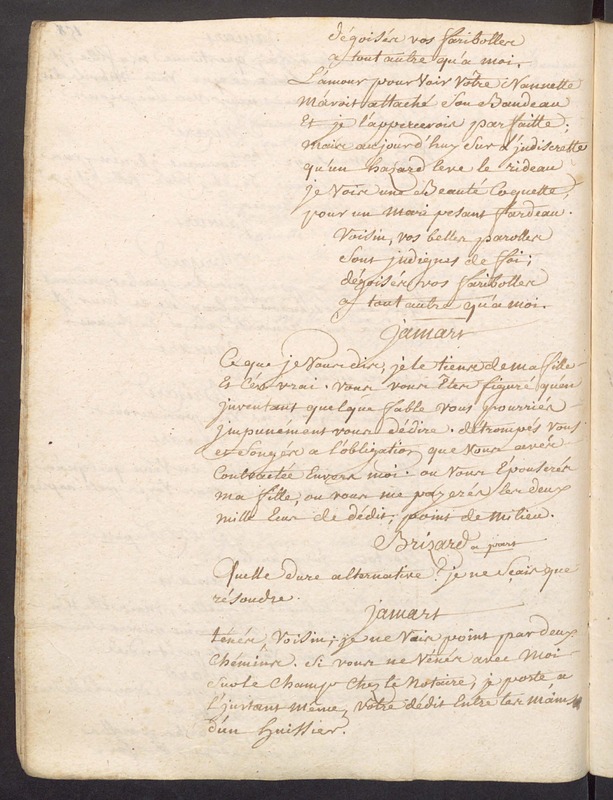 dégoisés vos fariboller
a tout autre qu'a moi.
L'amour pour voir vôtre Nannette
m'avoit attaché son Bandeau
Et je l'appercevois parfaitte;
mais aujourd'huy sur l'indiscrette
qu'un hazard leve le rideau
je vois une Beauté Coquette,
pour un mari pesant fardeau.
Voisin, vos belles parolles
sont indignes de foi;
dégoisés vos fariboller
a tout autre qu'a moi.
jamart
Ce que je vous dis, je le tiens de ma fille
Et c'est vrai. vous vous êtes figuré qu'en
inventant quelque fable vous pourriés
impunement vous dédire. détrompés vous
et songés a l'obligation que vous avés
contractée Envers moi. ou vous Epouserés
ma fille, ou vous me payerés les deux
mille Ecus de dédit, point de milieu.
Brizard a part
Quelle dure alternative! je ne sçais que
résoudre.
jamart
ténés, voisin, je ne vais point par deux
chémins. si vous ne vénés avec moi
sur le champ chez le Notaire, je porte a
l'instant même, vôtre dédit Entre les mains
d'un huissier.